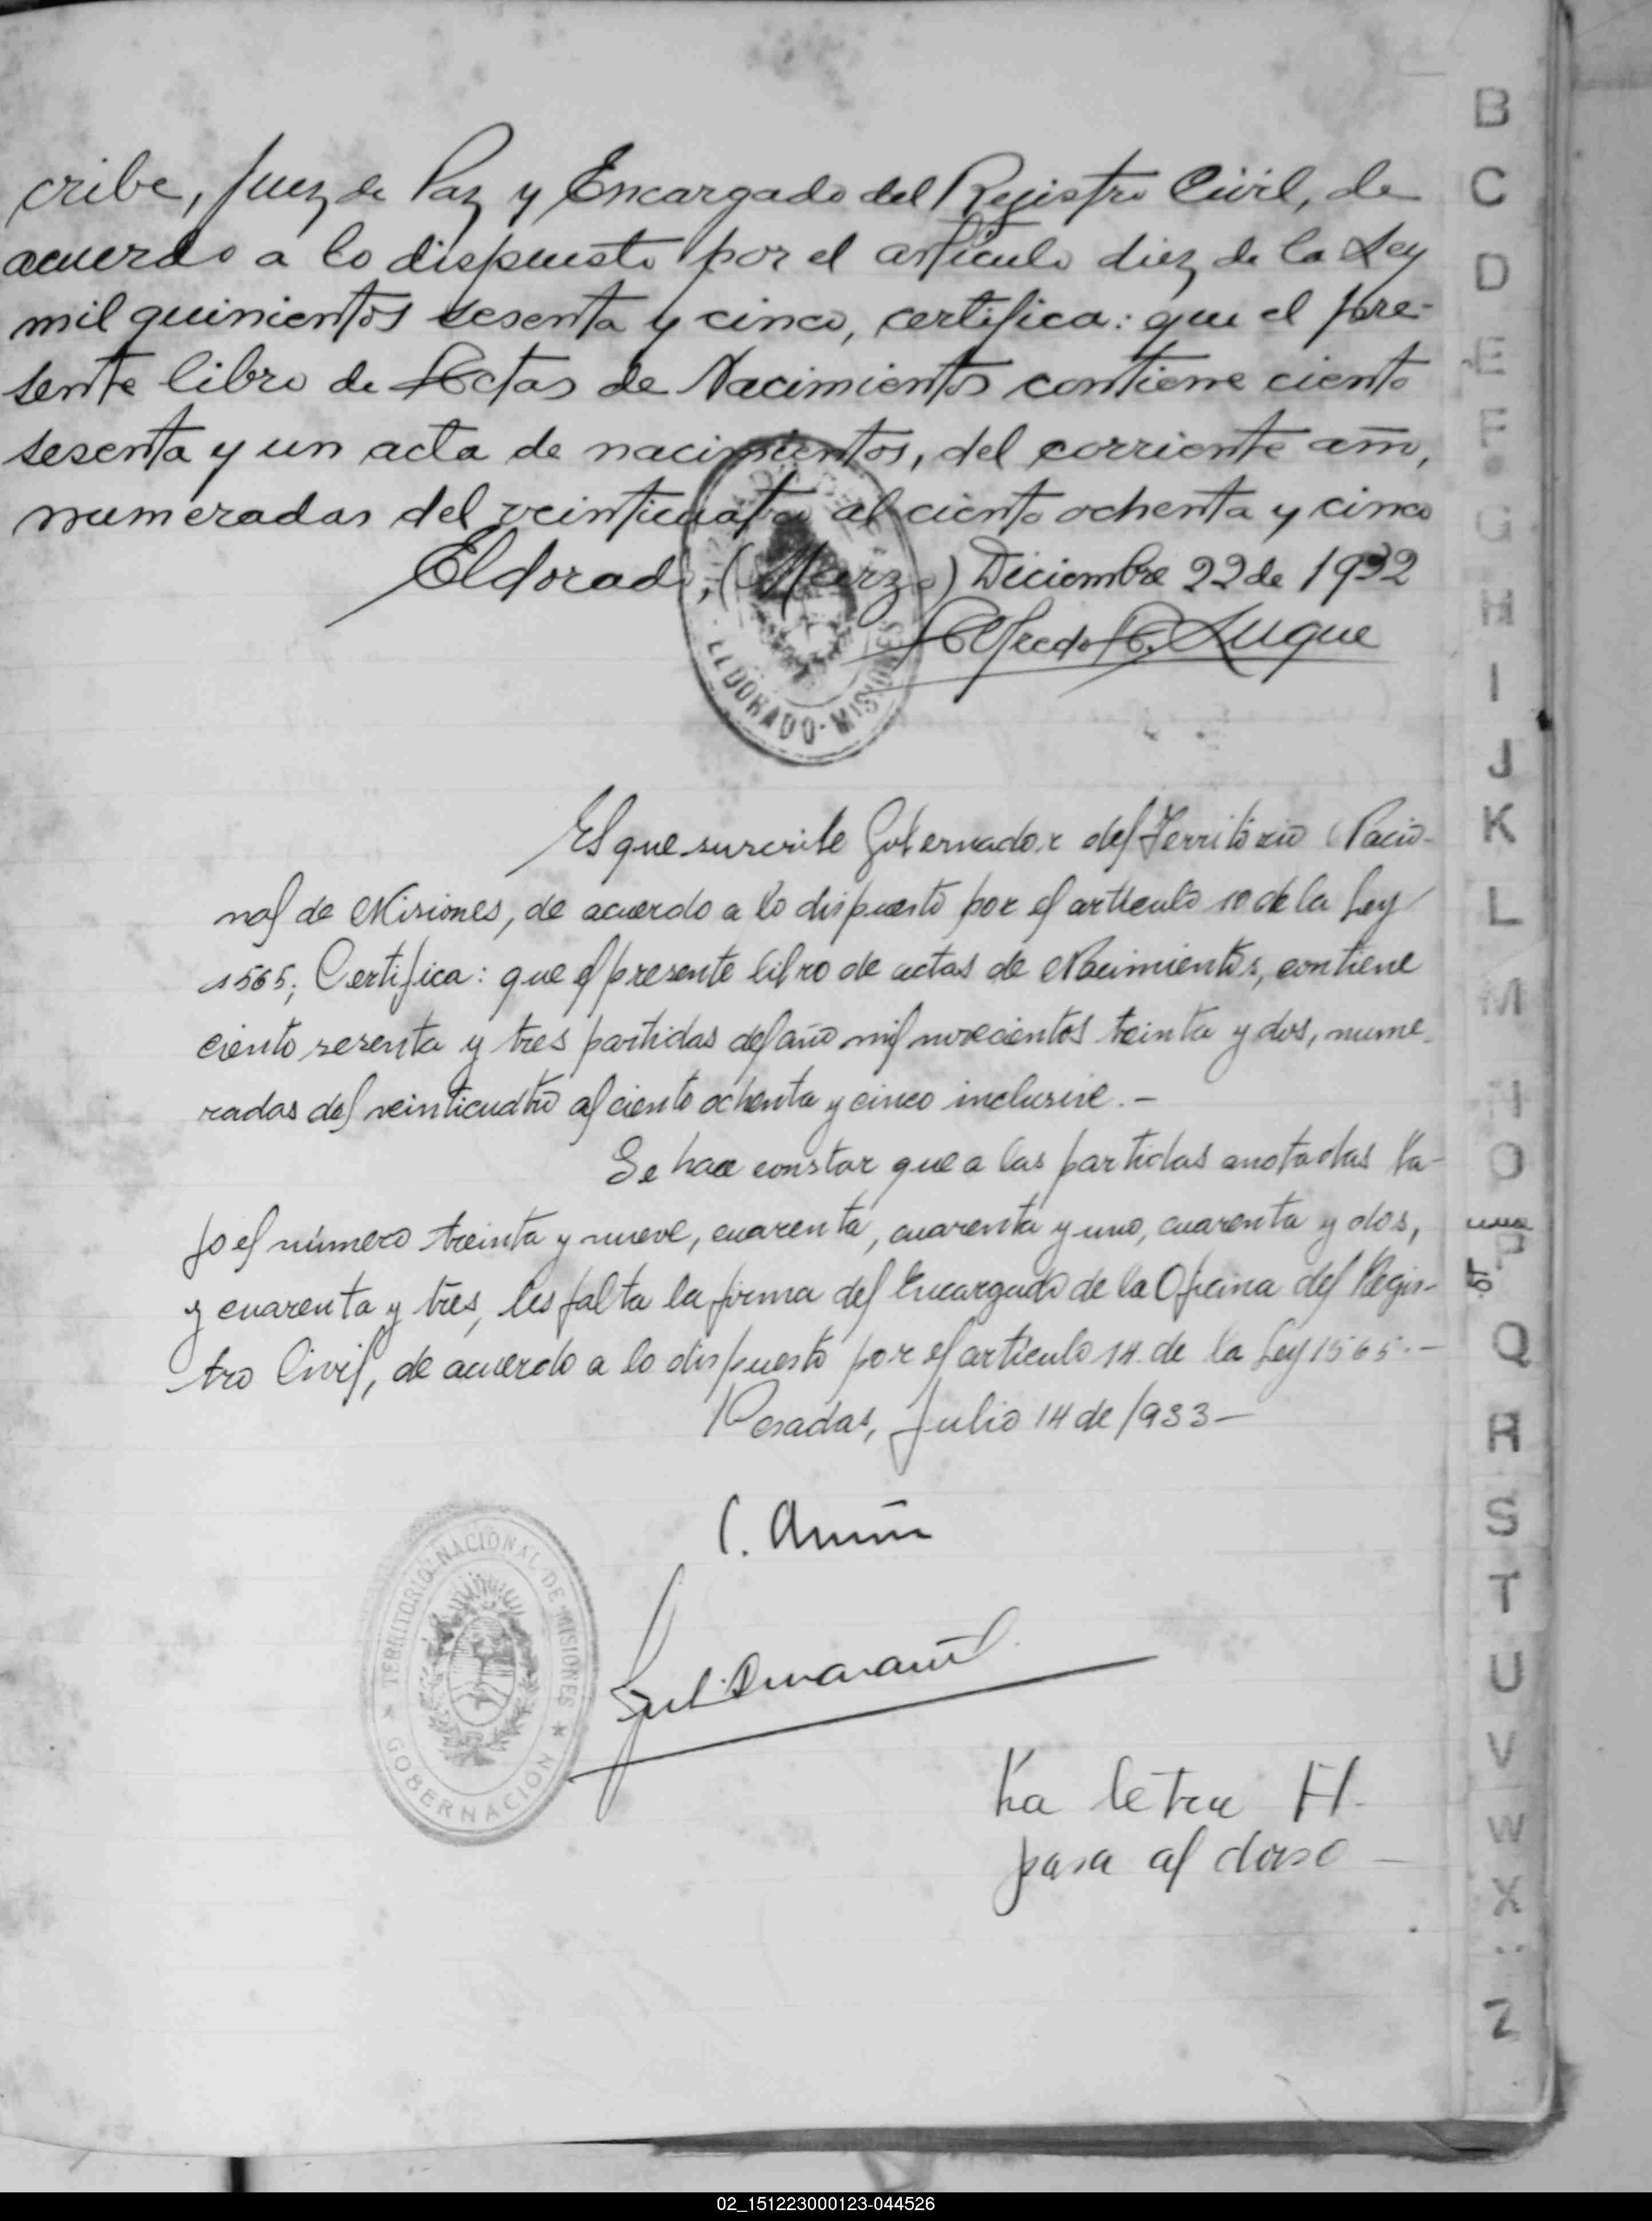 cribe, Juez de Paz y Encargado del Rejistro Civil, de
acuerdo a lo dispuesto por el artículo diez de la Ley
mil quinientos sesenta y cinco, certifica: que el pre-
sente libro de Actas de Nacimientos contiene ciento
sesenta y un acta de nacimientos, del corriente año,
numeradas del veinticuatro al ciento ochenta y cinco
Eldorado, (Marzo) Diciembre 22 de 1932
Alfredo A. Luque
ELDORADO-MISIONES
El que suscribe Gobernador del Territorio Nacio-
nal de Misiones, de acuerdo a lo dispuesto por el artículo 10 de la Ley
1565; Certifica: que el presente libro de actas de Nacimientos, contiene
ciento sesenta y tres partidas del año mil novecientos treinta y dos, nume-
radas del veinticuatro al ciento ochenta y cinco inclusive.-
Se hace constar que a las partidas anotadas ba-
jo el número treinta y nueve, cuarenta, cuarenta y uno, cuarenta y dos,
y cuarenta y tres, les falta la firma del Encargado de la Oficina del Regis-
tro Civil, de acuerdo a lo dispuesto por el artículo 14 de la Ley 1565.-
Posadas, Julio 14 de 1933-
TERRITORIO NACIONAL DE MISIONES
GOBERNACION
La letra H.
pasa al dorso -
B
C
D
E
F
G
H
I
J
K
L
M
N
O
P
Q
R
S
T
U
V
W
X
Z
02_151223000123-044526